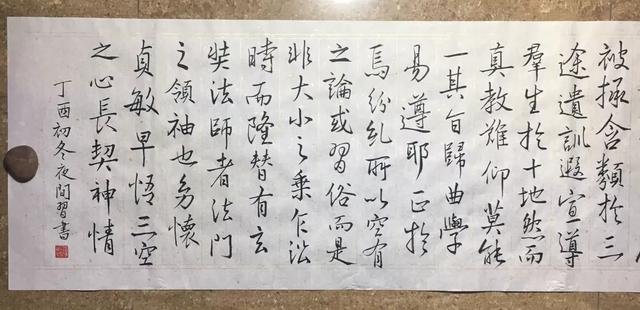 被拯含類於三
途遺訓遐宣導
群生於十地然而
真教難仰莫能
一其旨歸曲學
易遵耶正於
焉紛糺所以空有
之論或習俗而是
非大小之乘乍沿
時而隆替有玄
奘法師者法門
之領袖也幼懷
貞敏早悟三空
之心長契神情
丁酉初冬夜間習書